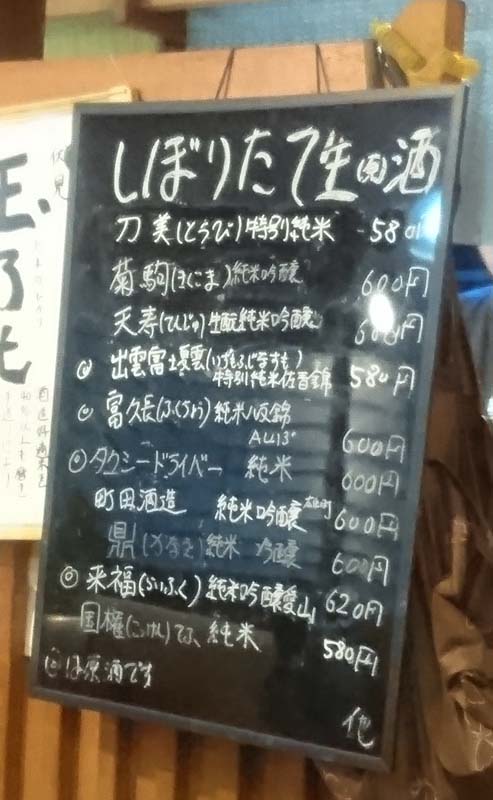 しぼりたて生(原)酒
刀美(とうび)特別純米 580円
菊駒(きくこま)純米吟醸 600円
天寿(てんじゅ)生酛純米吟醸 600円
◎ 出雲富士夏雲(いずもふじなつくも)
特別純米佐香錦 580円
◎ 富久長(ふくちょう)純米八反錦
AL13° 600円
◎ タクシードライバー 純米 600円
町田酒造 純米吟醸 600円
鼎(かなえ)純米吟醸 600円
◎ 来福(らいふく)純米吟醸愛山 620円
国権(こっけん)てふ、純米 580円
◎は原酒です
他
伏見